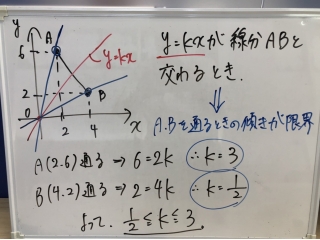 y
6
A
y=kx
2
B
0
2
4
x
y=kxが線分ABと
交わるとき.
⇓
A.Bを通るときの傾きが限界
A(2.6)通る ⇒ 6=2k ∴k=3
B(4.2)通る ⇒ 2=4k ∴k=1/2
よって、1/2≦k≦3